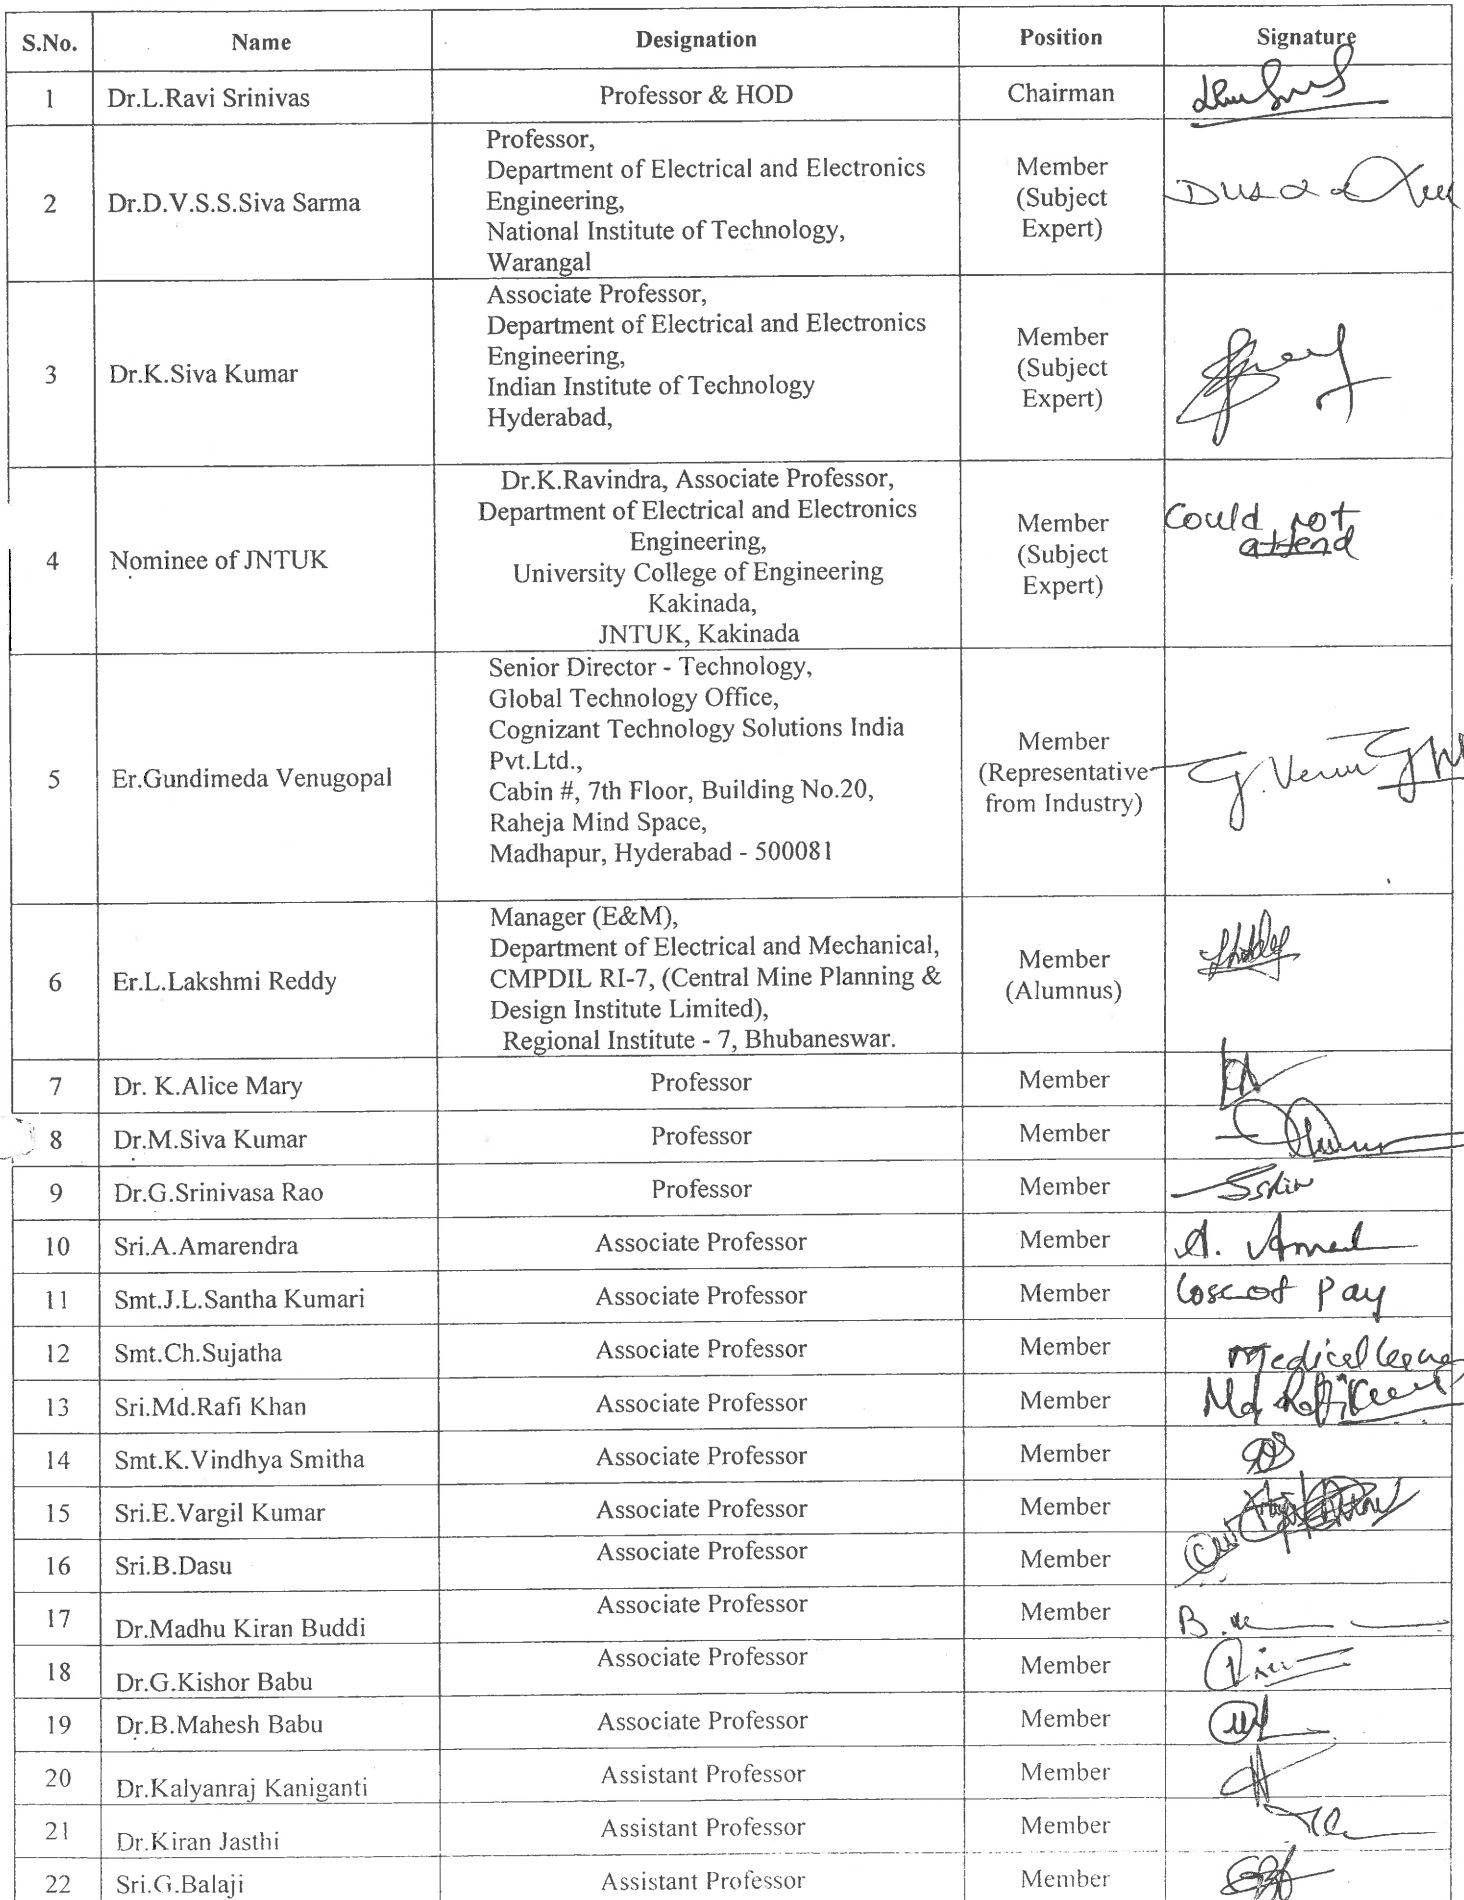 S.No. Name Designation Position Signature
1 Dr.L.Ravi Srinivas Professor & HOD Chairman
2 Dr.D.V.S.S.Siva Sarma
Professor,
Department of Electrical and Electronics
Engineering,
National Institute of Technology,
Warangal
Member
(Subject
Expert)
3 Dr.K.Siva Kumar
Associate Professor,
Department of Electrical and Electronics
Engineering,
Indian Institute of Technology
Hyderabad,
Member
(Subject
Expert)
4 Nominee of JNTUK
Dr.K.Ravindra, Associate Professor,
Department of Electrical and Electronics
Engineering,
University College of Engineering
Kakinada,
JNTUK, Kakinada
Member
(Subject
Expert)
Could not
attend
5 Er.Gundimeda Venugopal
Senior Director - Technology,
Global Technology Office,
Cognizant Technology Solutions India
Pvt.Ltd.,
Cabin #, 7th Floor, Building No.20,
Raheja Mind Space,
Madhapur, Hyderabad - 500081
Member
(Representative
from Industry)
6 Er.L.Lakshmi Reddy
Manager (E&M),
Department of Electrical and Mechanical,
CMPDIL RI-7, (Central Mine Planning &
Design Institute Limited),
Regional Institute - 7, Bhubaneswar.
Member
(Alumnus)
7 Dr. K.Alice Mary Professor Member
8 Dr.M.Siva Kumar Professor Member
9 Dr.G.Srinivasa Rao Professor Member
10 Sri.A.Amarendra Associate Professor Member
11 Smt.J.L.Santha Kumari Associate Professor Member Loss of Pay
12 Smt.Ch.Sujatha Associate Professor Member Medical leave
13 Sri.Md.Rafi Khan Associate Professor Member
14 Smt.K.Vindhya Smitha Associate Professor Member
15 Sri.E.Vargil Kumar Associate Professor Member
16 Sri.B.Dasu Associate Professor Member
17 Dr.Madhu Kiran Buddi Associate Professor Member
18 Dr.G.Kishor Babu Associate Professor Member
19 Dr.B.Mahesh Babu Associate Professor Member
20 Dr.Kalyanraj Kaniganti Assistant Professor Member
21 Dr.Kiran Jasthi Assistant Professor Member
22 Sri.G.Balaji Assistant Professor Member